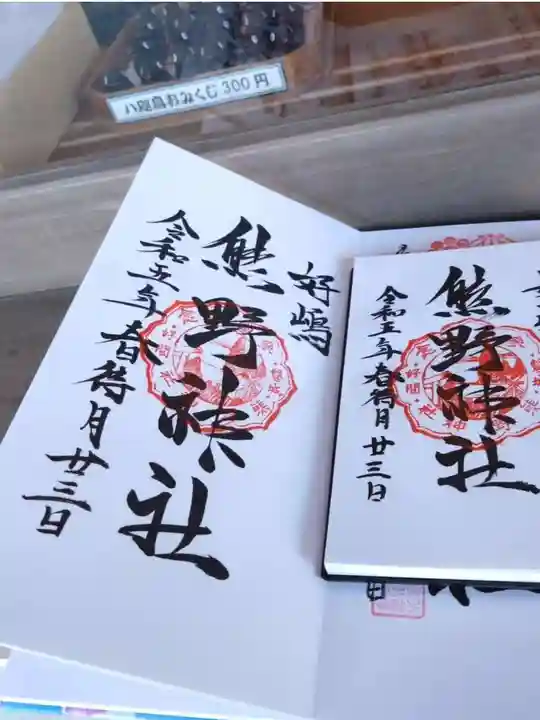 八咫烏おみくじ300円
好嶋
熊野神社
令和五年春待月廿三日
熊野神社
令和五年春待月廿三日